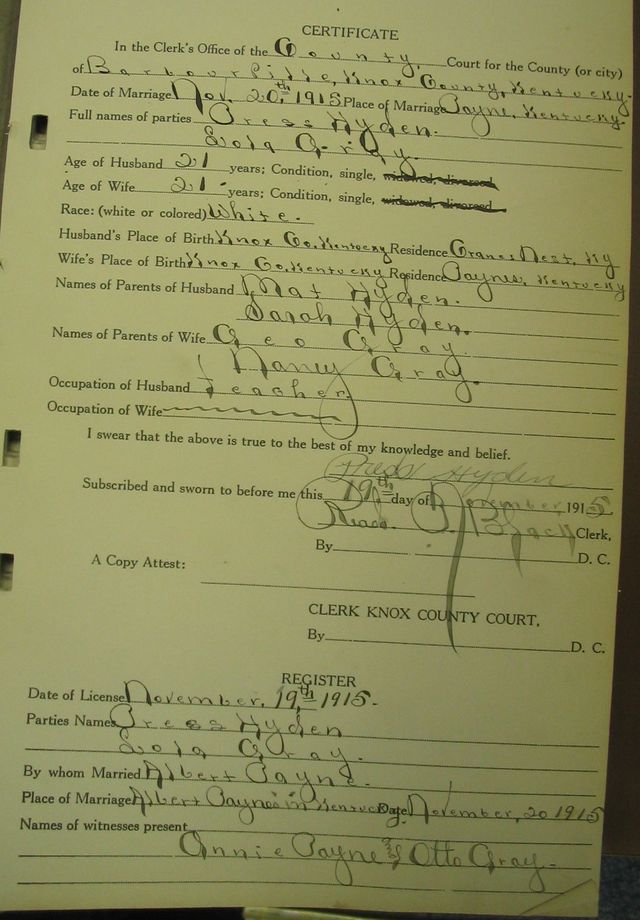 CERTIFICATE
In the Clerk's Office of the County, Court for the County (or city)
of Barbourville, Knox County, Kentucky.
Date of Marriage Nov. 20th, 1915 Place of Marriage Payne, Kentucky.
Full names of parties Press Hyden.
Lola Gray.
Age of Husband 21 years; Condition, single, widowed, divorced
Age of Wife 21 years; Condition, single, widowed, divorced
Race: (white or colored) White.
Husband's Place of Birth Knox Co. Kentucky Residence Cranes Nest, Ky
Wife's Place of Birth Knox Co. Kentucky Residence Paynes, Kentucky
Names of Parents of Husband Mat Hyden.
Sarah Hyden.
Names of Parents of Wife Geo Gray.
Nancy Gray.
Occupation of Husband Teacher
Occupation of Wife
I swear that the above is true to the best of my knowledge and belief.
Press Hyden
Subscribed and sworn to before me this 19th day of November 1915
Read Black Clerk,
By D. C.
A Copy Attest:
CLERK KNOX COUNTY COURT,
By D. C.
REGISTER
Date of License November, 19th 1915.
Parties Names Press Hyden
Lola Gray.
By whom Married Albert Payne.
Place of Marriage Albert Paynes in Kentucky Date November, 20 1915
Names of witnesses present
Annie Payne & Otto Gray.